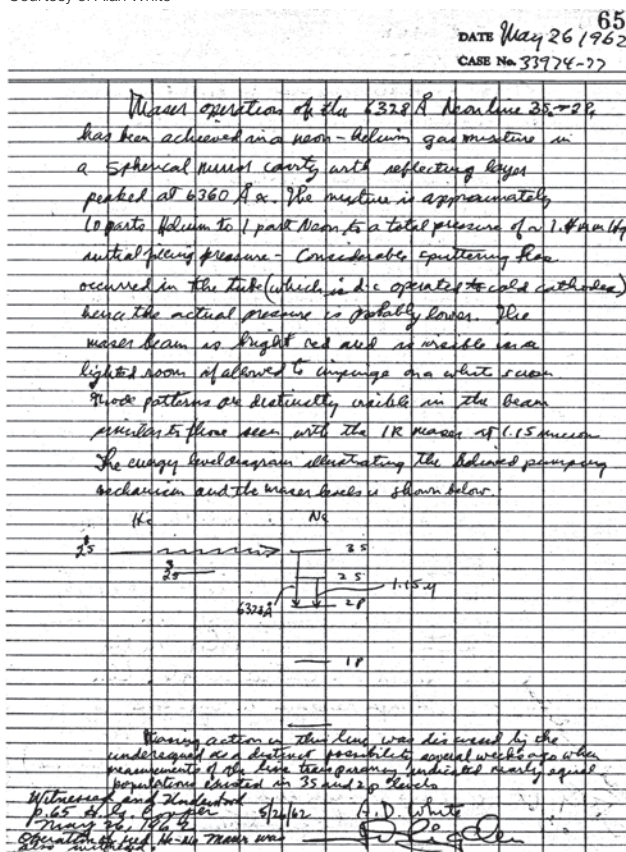 Courtesy of Alan White
65
DATE May 26 1962
CASE No. 33974-77
Maser operation of the 6328 Å Neon line 3S→2P4
has been achieved in a neon-helium gas mixture in
a spherical mirror cavity with reflecting layer
peaked at 6360 Å. The mixture is approximately
10 parts Helium to 1 part Neon to a total pressure of ~ 1. mm Hg
initial filling pressure - Considerable sputtering has
occurred in the tube (which is d-c operated cold cathodes)
hence the actual pressure is probably lower. The
maser beam is bright red and is visible in a
lighted room if allowed to impinge on a white screen
Mode patterns are distinctly visible in the beam
similar to those seen with the IR maser at 1.15 micron
The energy level diagram illustrating the believed pumping
mechanism and the maser levels is shown below.
He Ne
2¹S 3S
2³S 2S
1.15 µ
6328Å 2P
1P
Masing action in this line was discussed by the
undersigned as a distinct possibility several weeks ago when
measurements of the line transparency indicated nearly equal
populations existed in 3S and 2p levels
Witnessed and Understood
p. 65 5/26/62 A. D. White
May 26, 1962
Operation of red He-Ne Maser was
also witnessed.